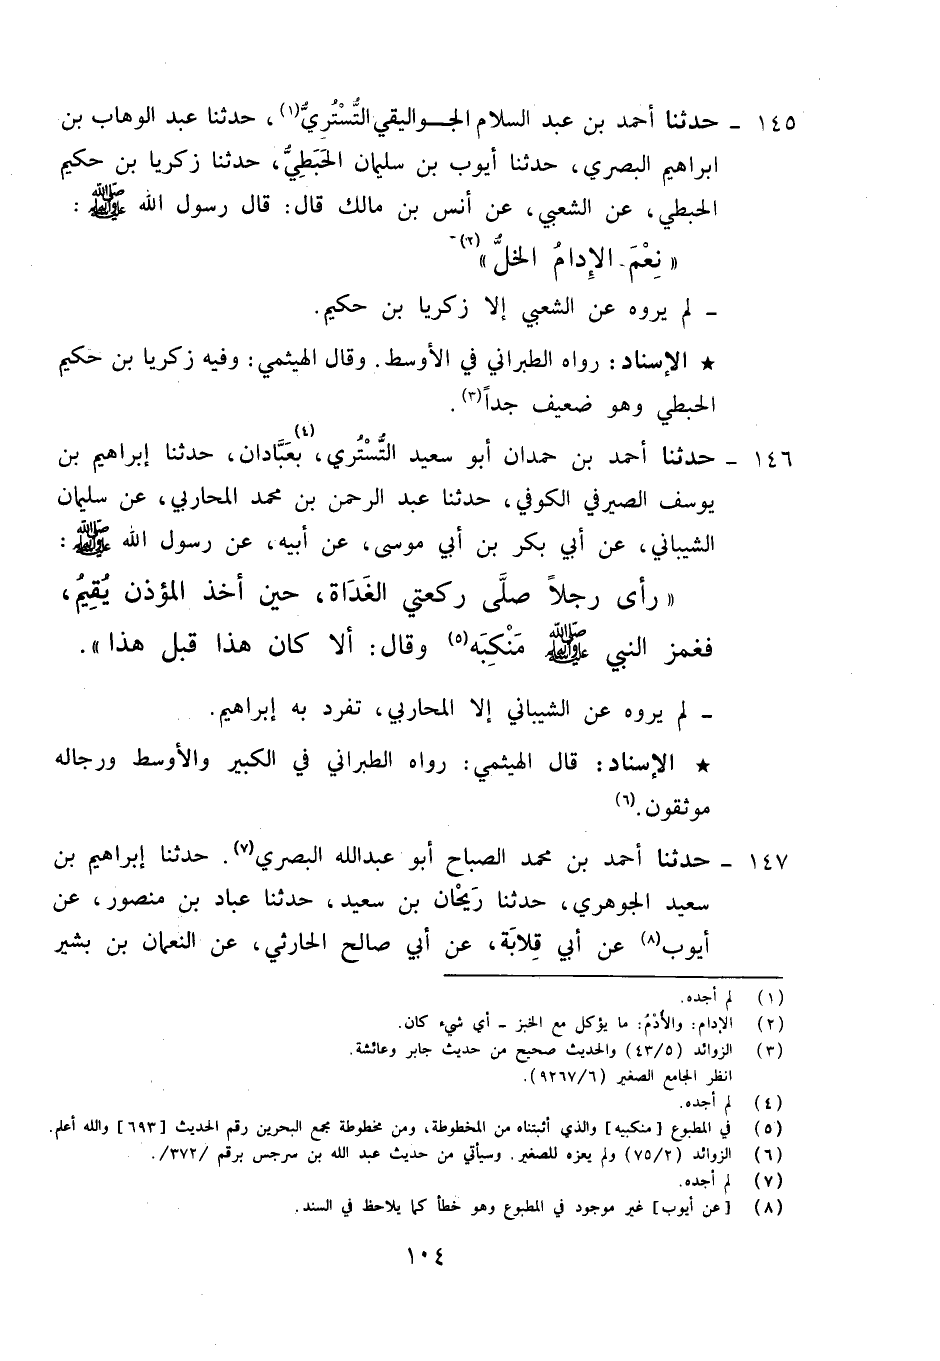 ١٤٥ ـ حدثنا أحمد بن عبد السلام الجـواليقي التُّسْتُرِيُّ(١)، حدثنا عبد الوهاب بن
ابراهيم البصري، حدثنا أيوب بن سليمان الحَبَطِيُّ، حدثنا زكريا بن حكيم
الحبطي، عن الشعبي، عن أنس بن مالك قال: قال رسول الله ﷺ :
« نِعْمَ الإِدامُ الخلُّ »(٢)
ـ لم يروه عن الشعبي إلا زكريا بن حكيم.
★ الإسناد: رواه الطبراني في الأوسط. وقال الهيثمي: وفيه زكريا بن حكيم
الحبطي وهو ضعيف جداً(٣).
١٤٦ ـ حدثنا أحمد بن حمدان أبو سعيد التُّسْتُري، بعَبَّادان(٤)، حدثنا إبراهيم بن
يوسف الصيرفي الكوفي، حدثنا عبد الرحمن بن محمد المحاربي، عن سليمان
الشيباني، عن أبي بكر بن أبي موسى، عن أبيه، عن رسول الله ﷺ :
« رأى رجلاً صلَّى ركعتي الغَدَاة، حين أخذ المؤذن يُقِيمُ،
فغمز النبي ﷺ مَنْكِبَه(٥) وقال: ألا كان هذا قبل هذا ».
ـ لم يروه عن الشيباني إلا المحاربي، تفرد به إبراهيم.
★ الإسناد: قال الهيثمي: رواه الطبراني في الكبير والأوسط ورجاله
موثقون.(٦)
١٤٧ ـ حدثنا أحمد بن محمد الصباح أبو عبدالله البصري(٧). حدثنا إبراهيم بن
سعيد الجوهري، حدثنا رَيَحْان بن سعيد، حدثنا عباد بن منصور، عن
أيوب(٨) عن أبي قِلابَة، عن أبي صالح الحارثي، عن النعمان بن بشير
(١) لم أجده.
(٢) الإدام: والأُدْمُ: ما يؤكل مع الخبز ـ أي شيء كان.
(٣) الزوائد (٤٣/٥) والحديث صحيح من حديث جابر وعائشة.
انظر الجامع الصغير (٩٢٦٧/٦).
(٤) لم أجده.
(٥) في المطبوع [منكبيه] والذي أثبتناه من المخطوطة، ومن مخطوطة مجمع البحرين رقم الحديث [٦٩٣] والله أعلم.
(٦) الزوائد (٧٥/٢) ولم يعزه للصغير. وسيأتي من حديث عبد الله بن سرجس برقم /٣٧٢/.
(٧) لم أجده.
(٨) [عن أيوب] غير موجود في المطبوع وهو خطأ كما يلاحظ في السند.
١٠٤